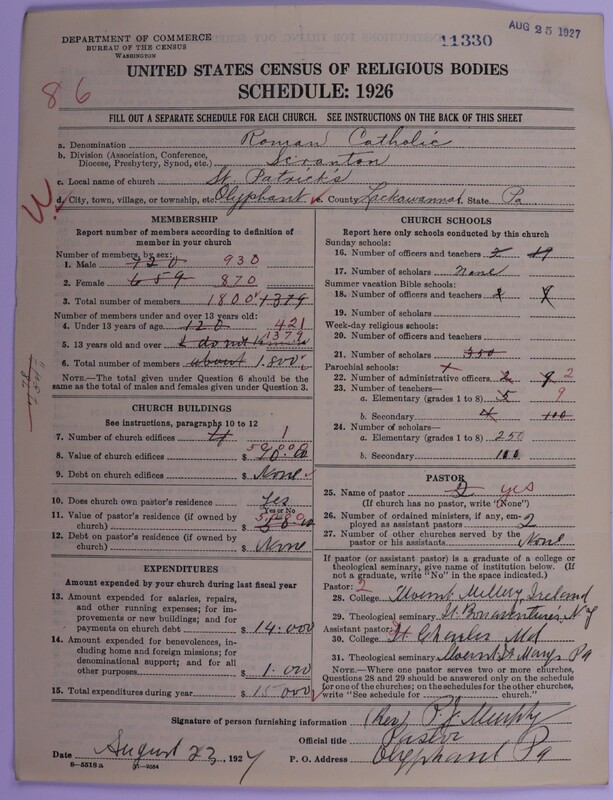 DEPARTMENT OF COMMERCE
BUREAU OF THE CENSUS
WASHINGTON
11330
AUG 25 1927
UNITED STATES CENSUS OF RELIGIOUS BODIES
SCHEDULE: 1926
86
FILL OUT A SEPARATE SCHEDULE FOR EACH CHURCH. SEE INSTRUCTIONS ON THE BACK OF THIS SHEET
a. Denomination Roman Catholic
b. Division (Association, Conference, Diocese, Presbytery, Synod, etc.) Scranton
c. Local name of church St. Patrick's
d. City, town, village, or township, etc. Olyphant e. County Lackawanna State Pa
MEMBERSHIP
Report number of members according to definition of
member in your church
Number of members, by sex:
1. Male 720 930
2. Female 659 870
3. Total number of members 1800 1379
Number of members under and over 13 years old:
4. Under 13 years of age 120 421
5. 13 years old and over I do not 1379
6. Total number of members about 1.800
NOTE.—The total given under Question 6 should be the
same as the total of males and females given under Question 3.
CHURCH BUILDINGS
See instructions, paragraphs 10 to 12
7. Number of church edifices 1
8. Value of church edifices $
9. Debt on church edifices $ None
10. Does church own pastor's residence Yes
Yes or No
11. Value of pastor's residence (if owned by
church) $
12. Debt on pastor's residence (if owned by
church) $ None
EXPENDITURES
Amount expended by your church during last fiscal year
13. Amount expended for salaries, repairs,
and other running expenses; for im-
provements or new buildings; and for
payments on church debt $ 14.000
14. Amount expended for benevolences, in-
cluding home and foreign missions; for
denominational support; and for all
other purposes $ 1.000
15. Total expenditures during year $ 15000
CHURCH SCHOOLS
Report here only schools conducted by this church
Sunday schools:
16. Number of officers and teachers 2 19
17. Number of scholars none
Summer vacation Bible schools:
18. Number of officers and teachers 2
19. Number of scholars
Week-day religious schools:
20. Number of officers and teachers
21. Number of scholars 350
Parochial schools:
22. Number of administrative officers 2 9 2
23. Number of teachers—
a. Elementary (grades 1 to 8) 5 9
b. Secondary 4 100
24. Number of scholars—
a. Elementary (grades 1 to 8) 250
b. Secondary 100
PASTOR
25. Name of pastor 2 yes
(If church has no pastor, write "None")
26. Number of ordained ministers, if any, em-
ployed as assistant pastors 2
27. Number of other churches served by the
pastor or his assistants None
If pastor (or assistant pastor) is a graduate of a college or
theological seminary, give name of institution below. (If
not a graduate, write "No" in the space indicated.)
Pastor: 2
28. College Mount Mellery, Ireland
29. Theological seminary St. Bonaventure's N.Y
Assistant pastor:
30. College St Charles Md
31. Theological seminary Mount St Marys Pa
NOTE.—Where one pastor serves two or more churches,
Questions 28 and 29 should be answered only on the schedule
for one of the churches; on the schedules for the other churches,
write "See schedule for church."
Signature of person furnishing information (Rev) P. J. Murphy
Official title Pastor
Date August 23, 1927 P. O. Address Olyphant Pa
8—5518 a